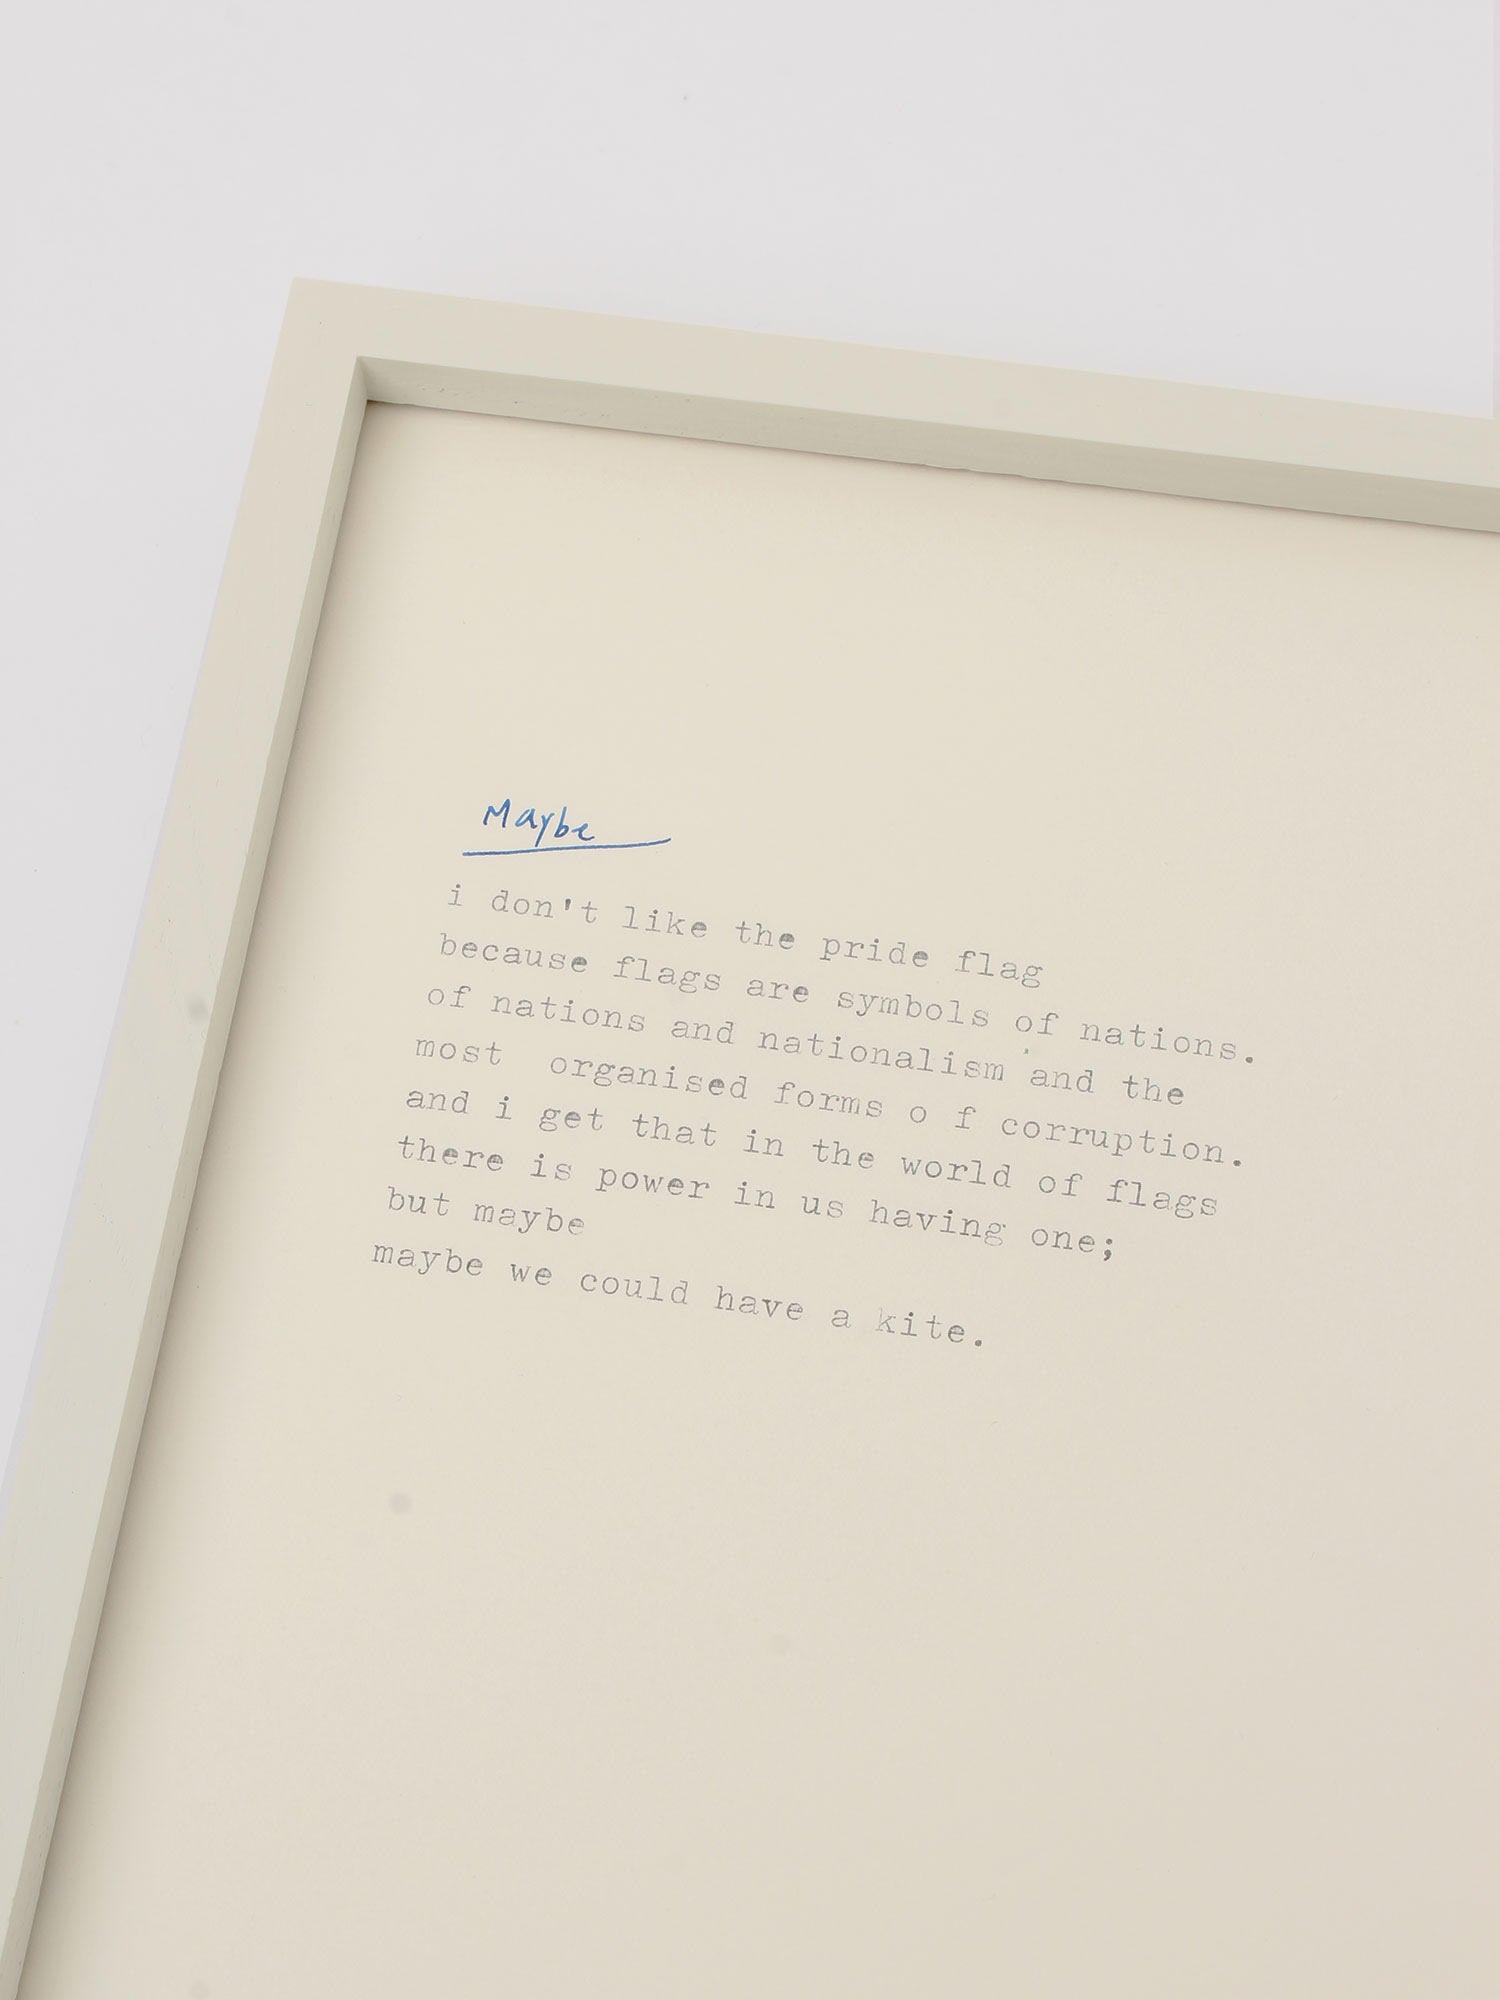 Maybe
i don't like the pride flag
because flags are symbols of nations.
of nations and nationalism and the
most  organised forms o f corruption.
and i get that in the world of flags
there is power in us having one;
but maybe
maybe we could have a kite.